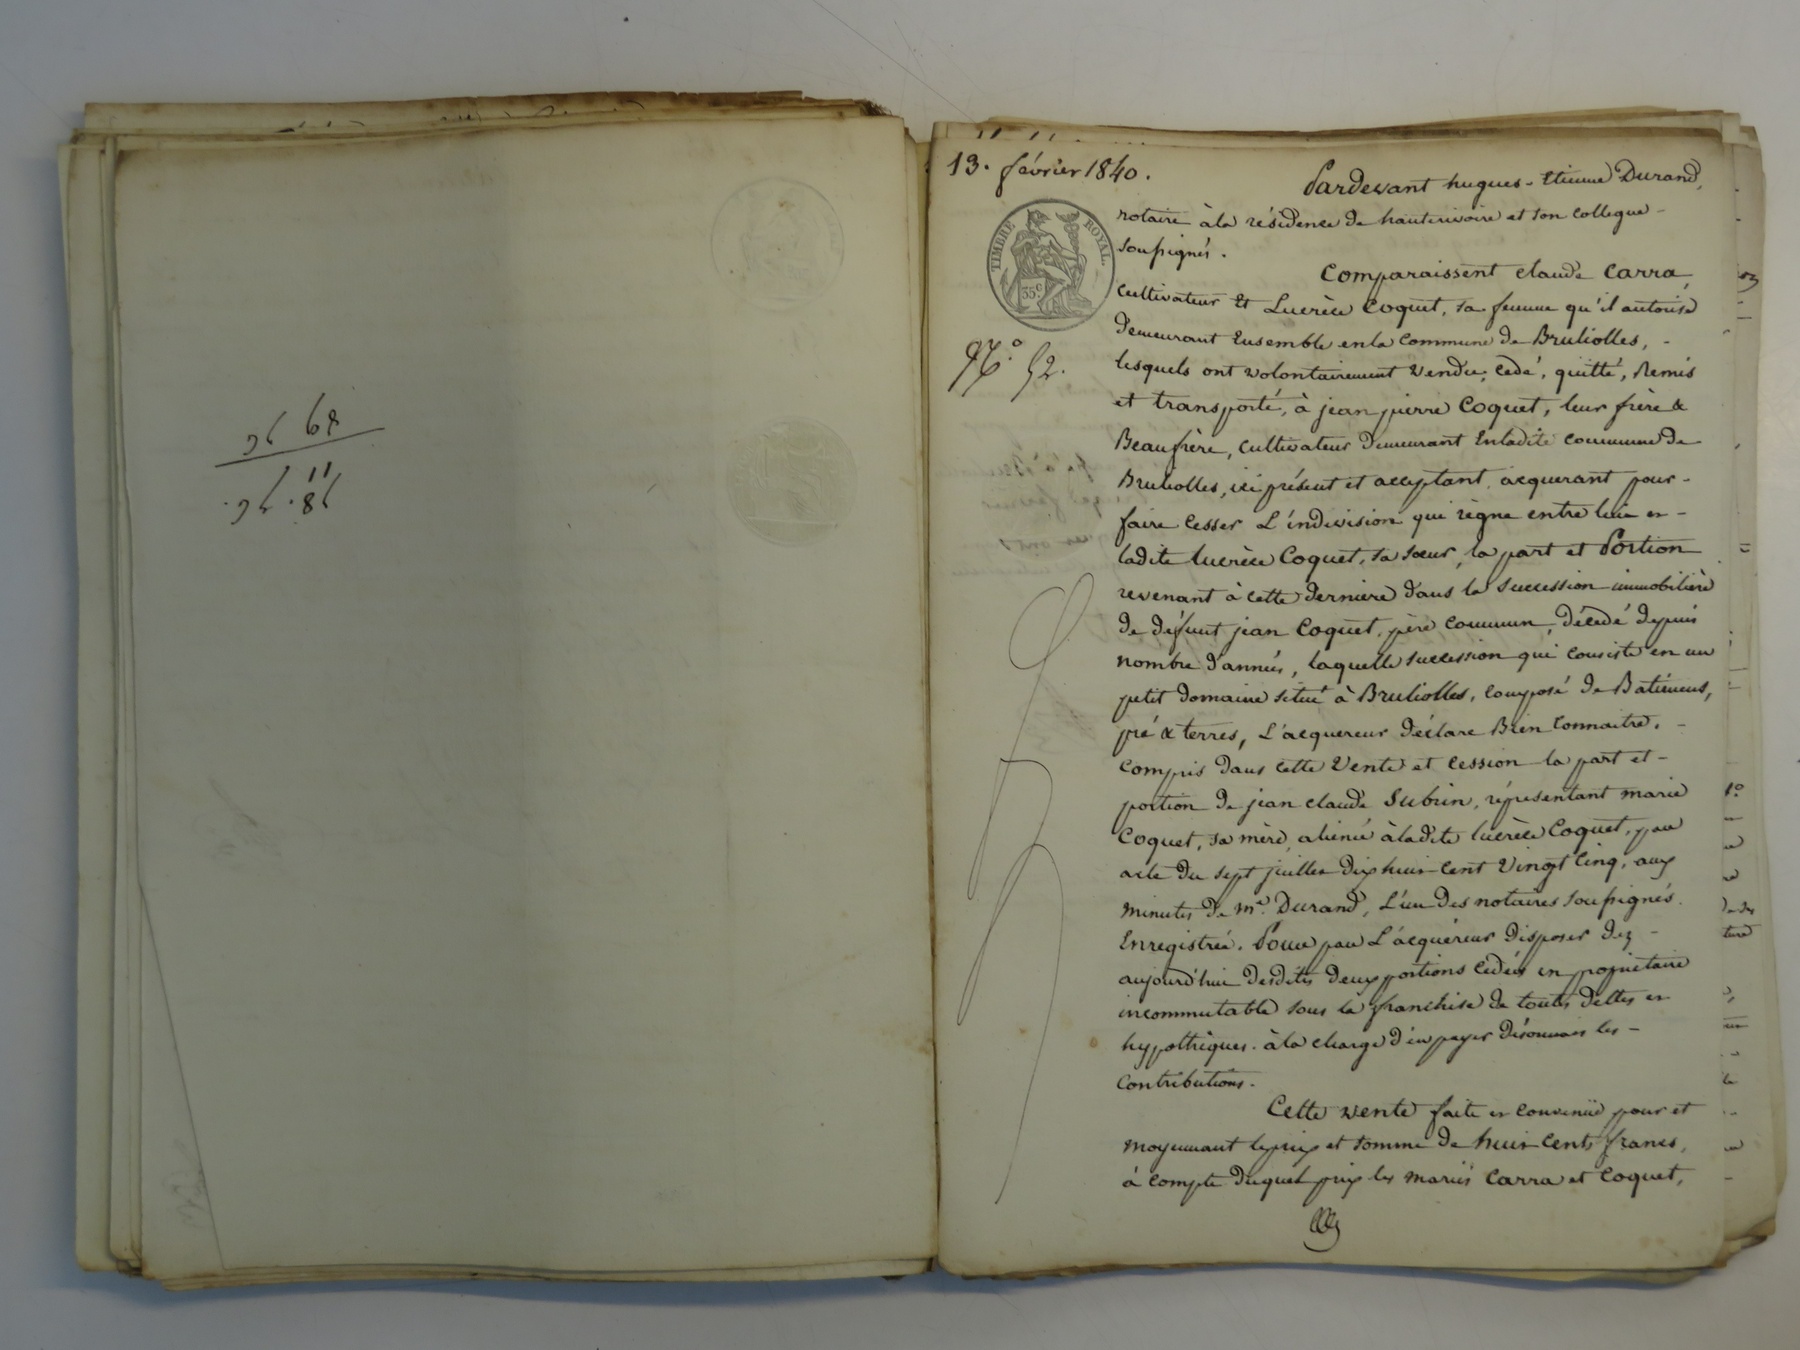 13. février 1840.
Pardevant hugues-Etienne Durand,
notaire à la résidence de hauterivoire et son collegue -
soussignés.
TIMBRE ROYAL.
35 c
Comparaissent claude Carra,
cultivateur Et Lucrèce Coquet, sa femme qu'il autorise
demeurant Ensemble en la Commune de Bruliolles, -
N.° 52.
lesquels ont volontairement Vendu, cedé, quitté, Remis
et transporté, à jean pierre Coquet, leur frère &
Beaufrère, cultivateur demeurant Enladite commune de
Bruliolles, ici présent et acceptant, acquerant pour -
faire cesser L'indivision qui règne entre lui et -
ladite lucrèce Coquet, sa sœur, la part et Portion
revenant à cette dernière dans la succession immobilière
de défunt jean Coquet, père commun, décedé depuis
nombre d'années, laquelle succession qui consiste en un
petit domaine situé à Bruliolles, composé de Batimens,
pré & terres, L'acquereur déclare Bien Connaitre. -
Compris dans cette Vente et cession la part et -
portion de jean claude Subrin, réprésentant marie
Coquet, sa mère, alienée àladite lucrèce Coquet, par
acte du sept juillet dix huit cent Vingt Cinq, aux
minutes de me. Durand, L'un des notaires soussignés.
Enregistrée. Pour par L'acquéreur disposer dez -
aujourd'hui desdites deux portions cédées en propriétaire
incommutable sous la franchise de toutes dettes et
hypothèques. à la charge d'en payer désormais les -
Contributions.
Cette vente faite et convenüe pour et
moyennant leprix et somme de huit Cents francs,
à compte duquel prix les mariés Carra et Coquet,